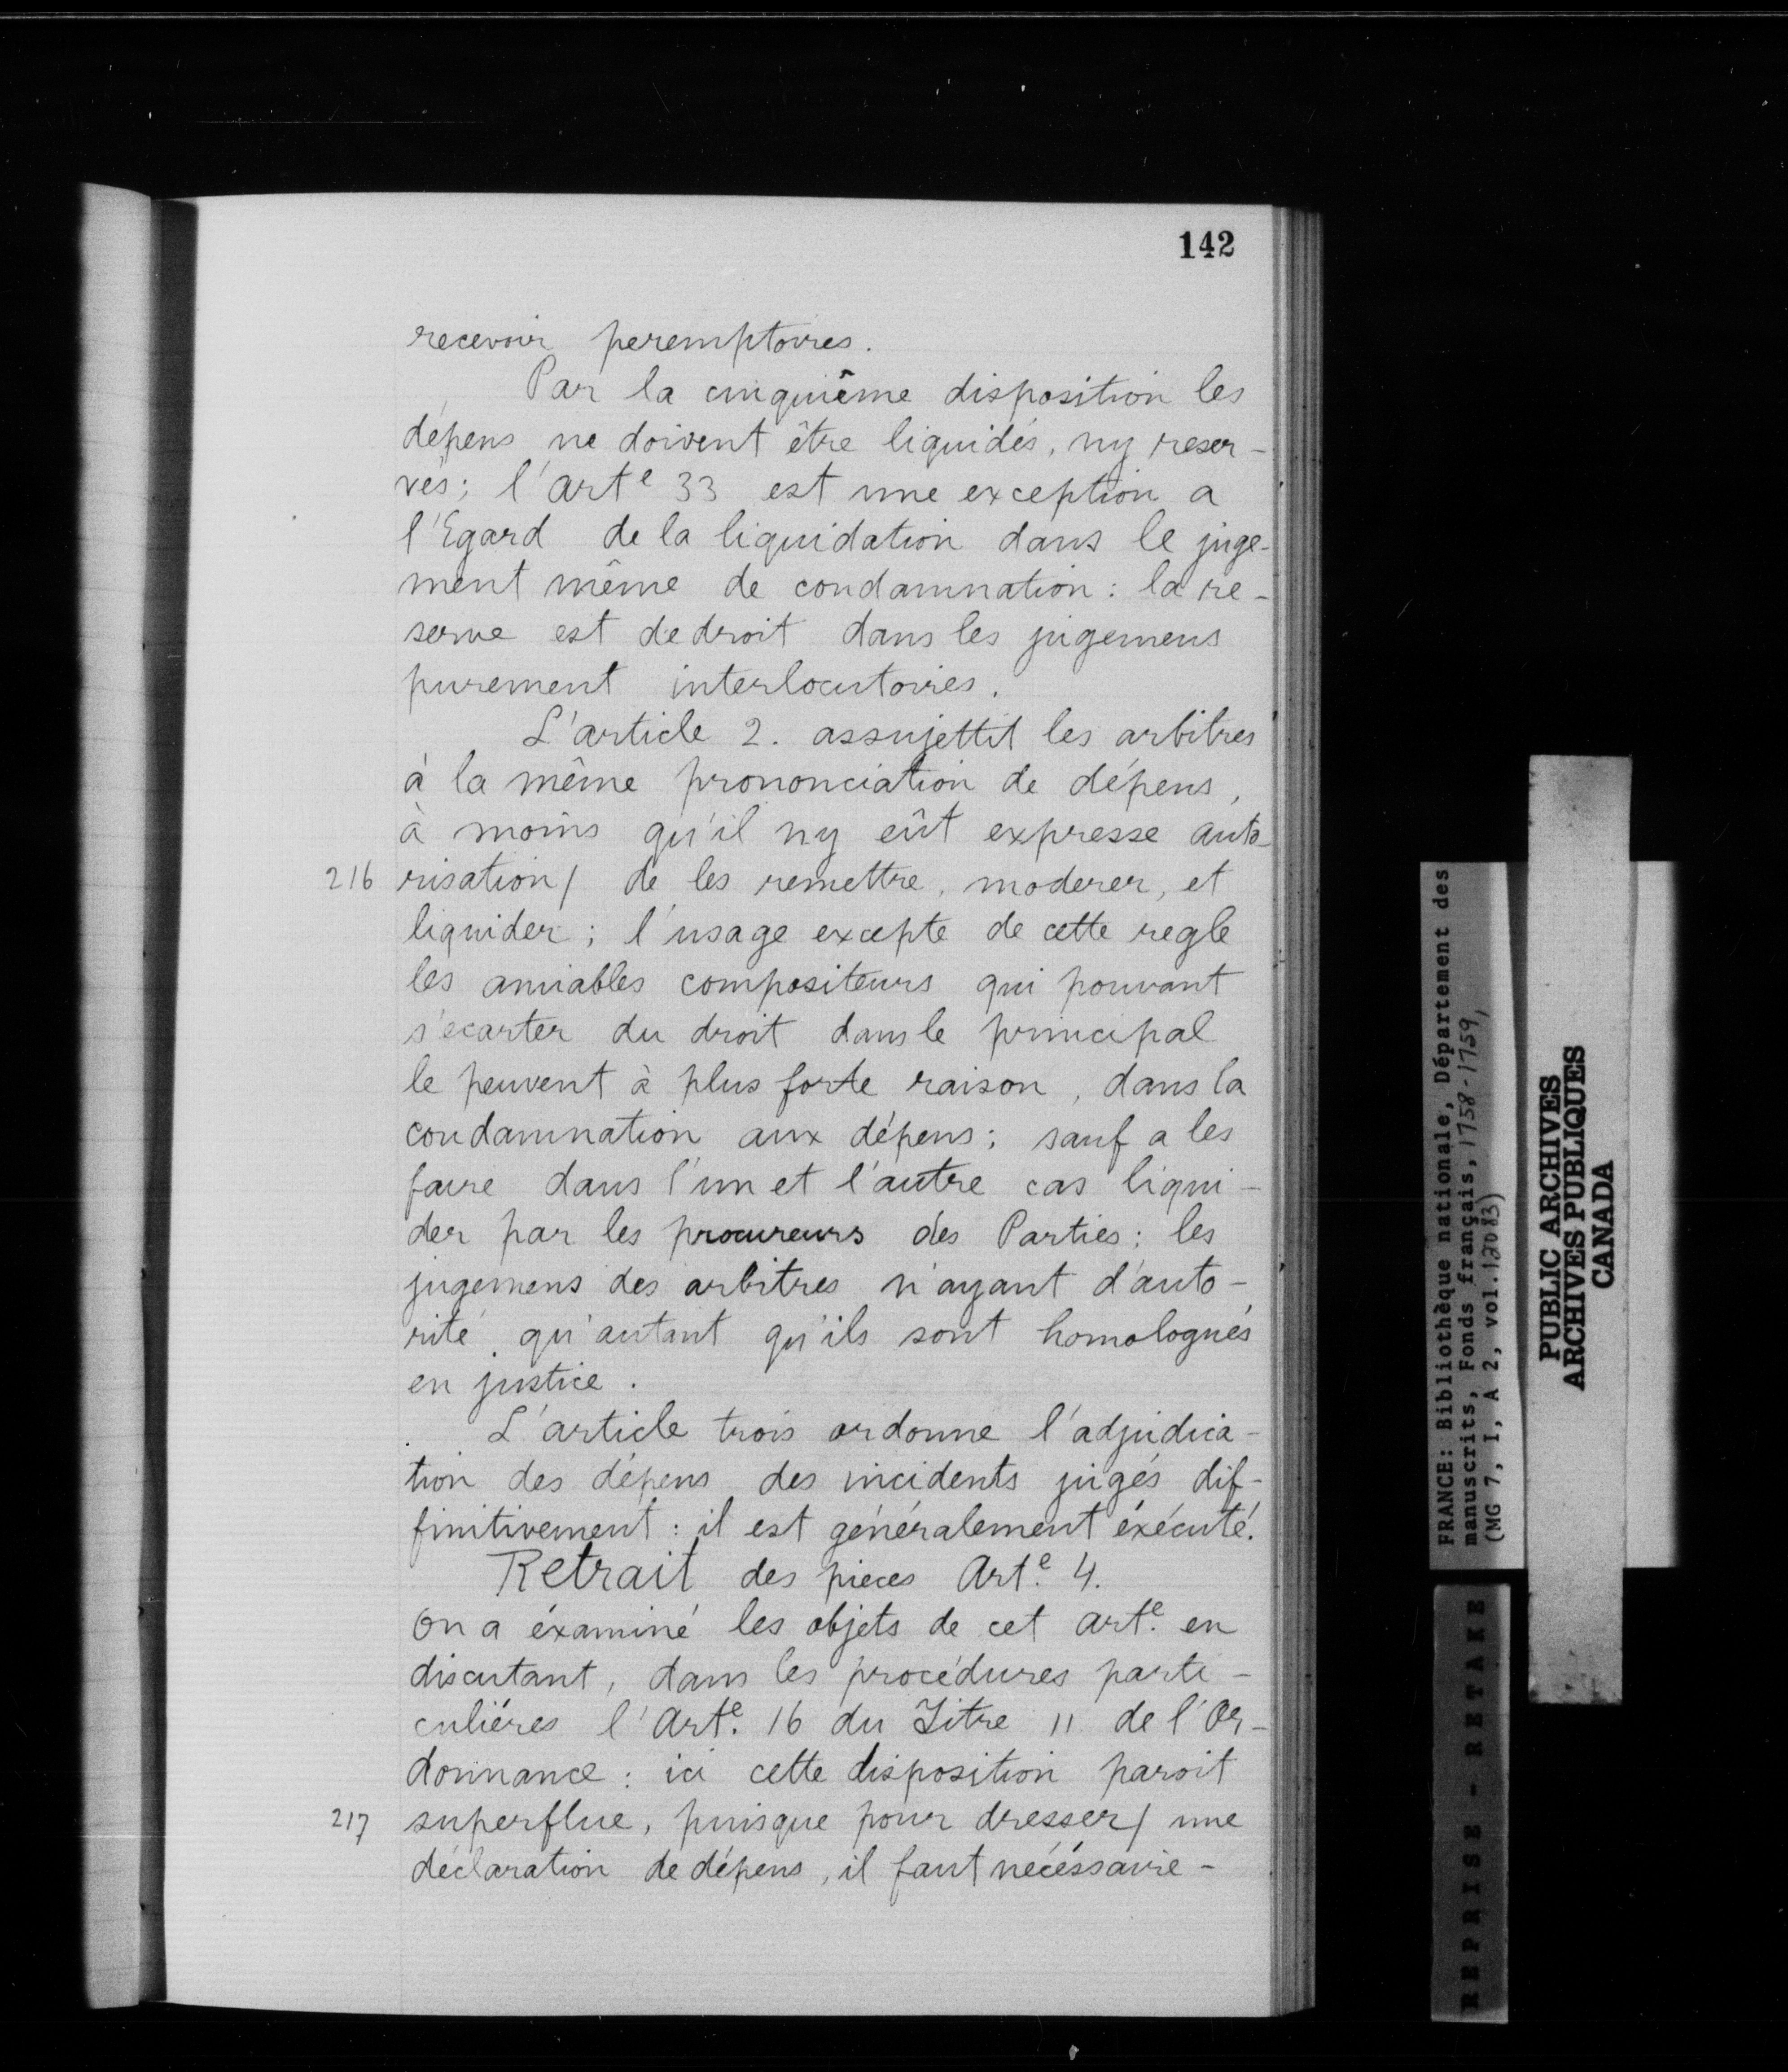 142
recevoir peremptoires.
Par la cinquième disposition les
dépens ne doivent être liquidés, ny reser-
vés; l'arte 33 est une exception a
l'Egard de la liquidation dans le juge-
ment même de condamnation : la re-
serve est de droit dans les jugemens
purement interlocutoires.
L'article 2. assujettit les arbitres
à la même prononciation de dépens,
à moins qu'il ny eût expresse auto-
216 risation/ de les remettre, moderer, et
liquider ; l'usage excepte de cette regle
les amiables compositeurs qui pouvant
s'ecarter du droit dans le principal
le peuvent à plus forte raison, dans la
condamnation aux dépens; sauf a les
faire dans l'un et l'autre cas liqui-
der par les procureurs des Parties; les
jugemens des arbitres n'ayant d'auto-
rité qu'autant qu'ils sont homologués
en justice.
L'article trois ordonne l'adjudica-
tion des dépens des incidents jugés dif-
finitivement : il est généralement éxécuté.
Retrait des pieces Arte. 4.
On a éxaminé les objets de cet arte. en
discutant, dans les procédures parti-
culiéres l'Arte. 16 du Titre 11 de l'Or-
donnance : ici cette disposition paroit
217 superflue, puisque pour dresser/ une
déclaration de dépens, il faut necéssaire-
FRANCE: Bibliothèque nationale, Département des
manuscrits, Fonds français, 1758-1759,
(MG 7, I, A 2, vol. 12083)
PUBLIC ARCHIVES
ARCHIVES PUBLIQUES
CANADA
REPRISE - RETAKE